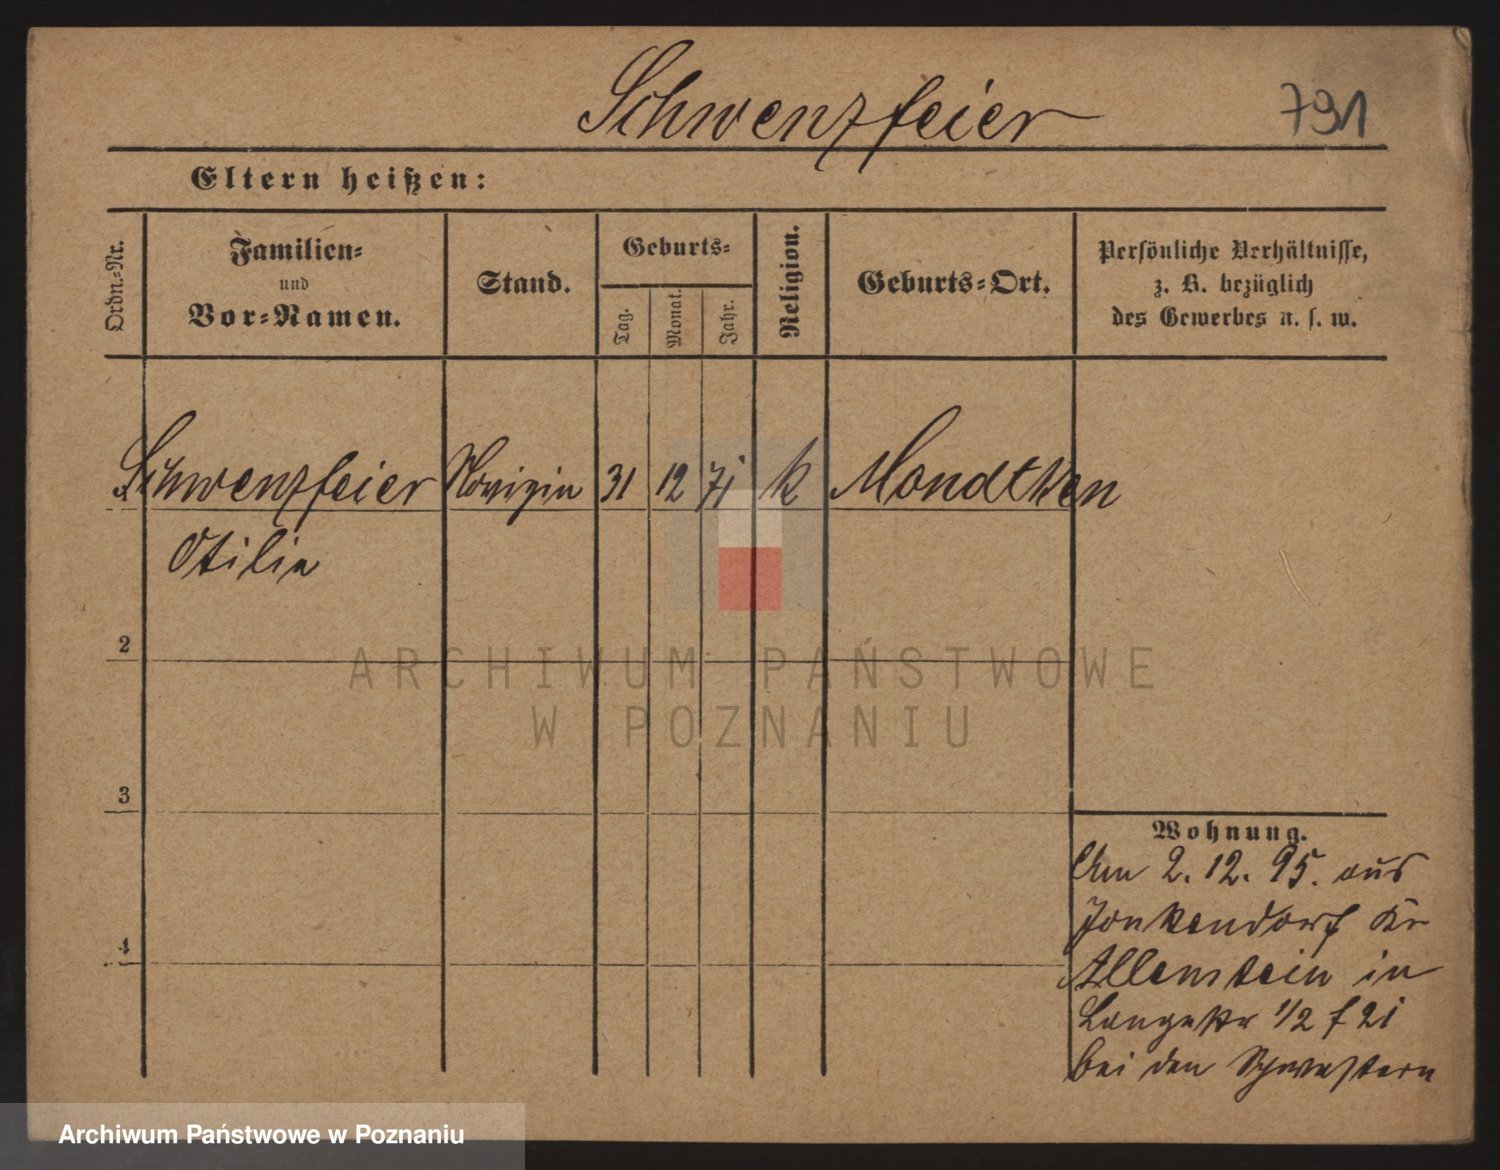 Schwenzfeier
791
Eltern heißen:
Ordn.-Nr.
Familien-
und
Vor-Namen.
Stand.
Geburts-
Tag.
Monat.
Jahr.
Religion.
Geburts-Ort.
Persönliche Verhältnisse,
z. B. bezüglich
des Gewerbes u. s. w.
Schwenzfeier Novizin 31 12 71 k Mondtken
Otilie
2
3
4
Wohnung.
Am 2. 12. 95. aus
Jonkendorf Kr
Allenstein in
Langestr 1/2 f 21
bei den Schwestern
ARCHIWUM PAŃSTWOWE
W POZNANIU
Archiwum Państwowe w Poznaniu